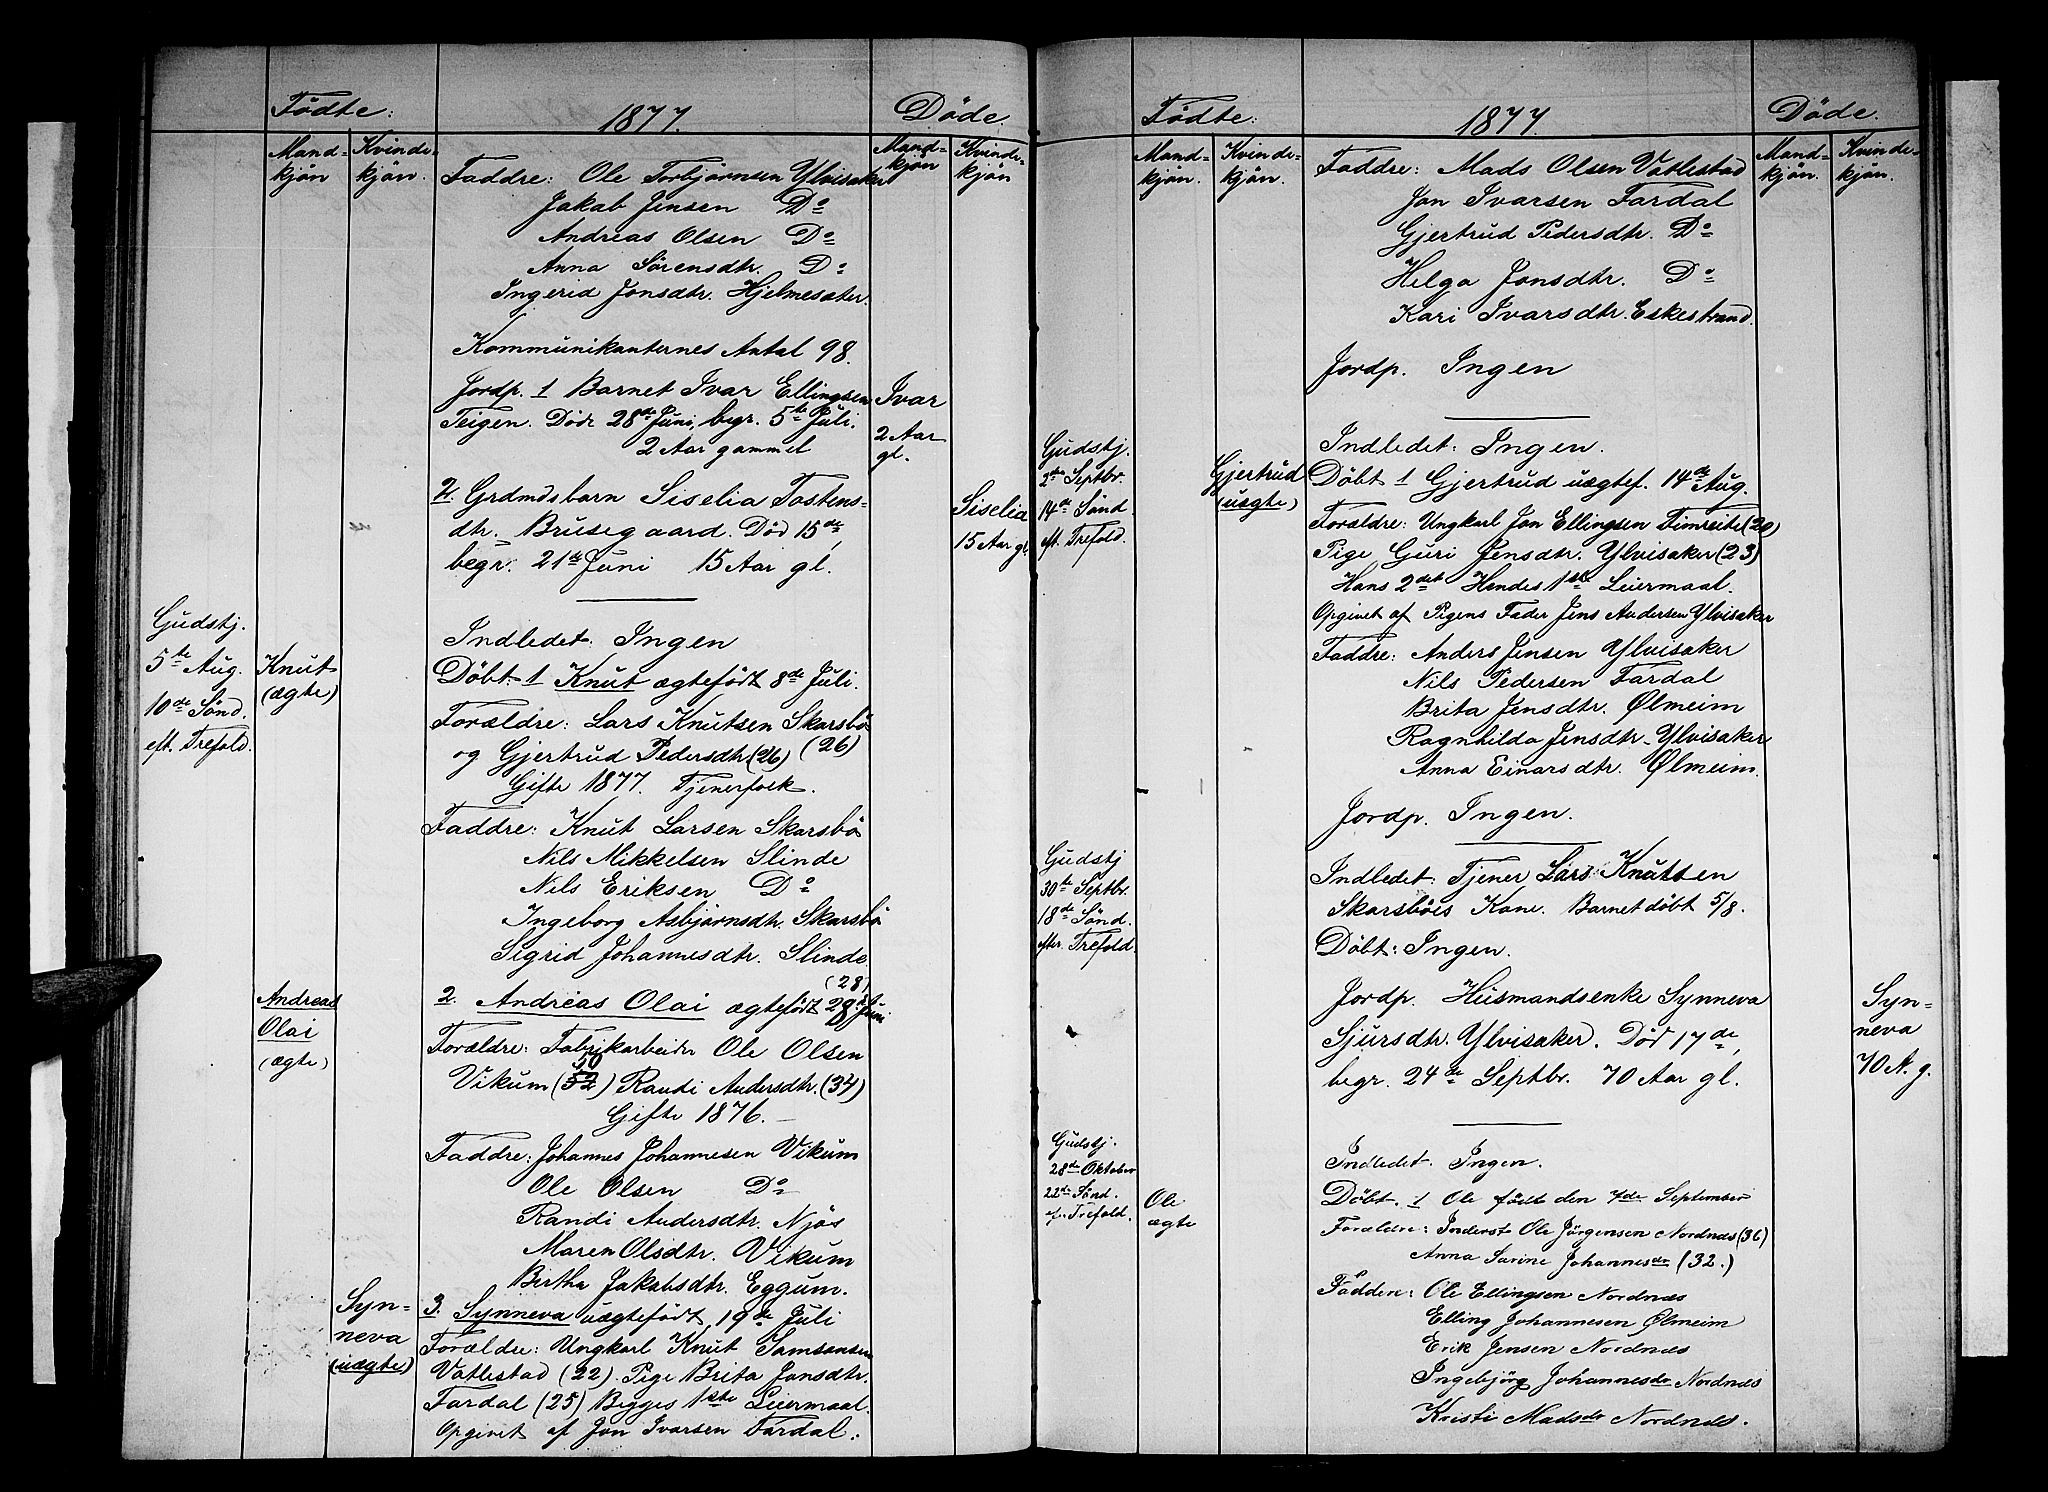 Födte:
1877.
Döde.
Mand-
kjön
Kvinde-
kjön.
Mand-
kjön
Kvinde-
kjön
Faddre: Ole Torbjörnsen Ylvisaker
Jakob Jensen Do
Andreas Olsen Do
Anna Sörensdtr. Do
Ingerid Jonsdtr. Hjelmesæter.
Kommunikanternes Antal 98.
Jordp. 1 Barnet Ivar Ellingsen
Teigen. Död 28de Juni, begr. 5te Juli.
2 Aar gammel
Ivar
2 Aar
gl.
2. Grdmdsbarn Siselia Tostens-
dtr. Brusegaard. Död 15de,
begr. 21de Juni 15 Aar gl.
Siselia
15 Aar gl.
Gudstj.
5te Aug.
10de Sönd.
eft. Trefold.
Indledet: Ingen
Knut
(ægte)
Döbt: 1 Knut ægtefödt 8de Juli.
Forældre: Lars Knutsen Skarsbö
(26)
og Gjertrud Pedersdtr (26)
Gifte 1877. Tjenerfolk.
Faddre: Knut Larsen Skarsbö
Nils Mikkelsen Slinde
Nils Eriksen Do
Ingeborg Asbjörnsdtr. Skarsbö
Sigrid Johannesdtr. Slinde
(28)
Andreas
Olai
(ægte)
2. Andreas Olai ægtefödt 28de Juni
Forældre: Fabrikarbeider Ole Olsen
50
Vikum (52) Randi Andersdtr. (34)
Gifte 1876.
Faddre: Johannes Johannesen Vikum
Ole Olsen Do
Randi Andersdtr. Njös
Maren Olsdtr. Vikum
Birtha Jakobsdtr. Eggum.
Syn-
neva
(uægte)
3. Synneva uægtefödt 19de Juli
Forældre: Ungkarl Knut Samsonsen
Vatlestad (22). Pige Brita Jonsdtr.
Fardal (25) Begges 1ste Leiermaal.
Opgivet af Jon Ivarsen Fardal.
Födte:
1877.
Döde.
Mand-
kjön.
Kvinde-
kjön.
Mand-
kjön.
Kvinde-
kjön.
Faddre: Mads Olsen Vatlestad
Jon Ivarsen Fardal
Gjertrud Pedersdtr. Do
Helga Jonsdtr. Do
Kari Ivarsdtr. Eskestrand.
Jordp. Ingen
Gudstj.
2den Septbr.
14de Sönd
eft. Trefold.
Indledet: Ingen.
Gjertrud
(uægte)
Döbt 1 Gjertrud uægtef. 14de Aug.
Forældre: Ungkarl Jon Ellingsen Timreite (20)
Pige Guri Jensdtr. Ylvisaker (23)
Hans 2det Hendes 1ste Leiermaal.
Opgivet af Pigens Fader Jens Andersen Ylvisaker
Faddre: Anders Jensen Ylvisaker
Nils Pedersen Fardal
Brita Jensdtr. Ølmeim
Ragnhilda Jensdtr. Ylvisaker
Anna Einarsdtr. Ølmeim.
Jordp. Ingen.
Gudstj
30te Septbr.
18de Sönd.
efter Trefold.
Indledet: Tjener Lars Knutsen
Skarsböes Kone. Barnet döbt 5/8.
Döbt: Ingen.
Jordp. Husmandsenke Synneva
Sjursdtr. Ylvisaker. Död 17de,
begr. 24de Septbr. 70 Aar gl.
Syn-
neva
70 A. g.
Gudstj.
28de Oktober
22de Sönd.
ef. Trefold.
Indledet. Ingen.
Ole
ægte
Döbt. 1 Ole födt den 7de September
Forældre: Inderst Ole Jörgensen Nordnæs (36)
Anna Sarine Johannesdr (32.)
Faddere: Ole Ellingsen Nordnæs
Elling Johannesen Ølmeim
Erik Jensen Nordnæs
Ingebjörg Johannesdr Nordnæs
Kristi Madsdr Nordnæs.